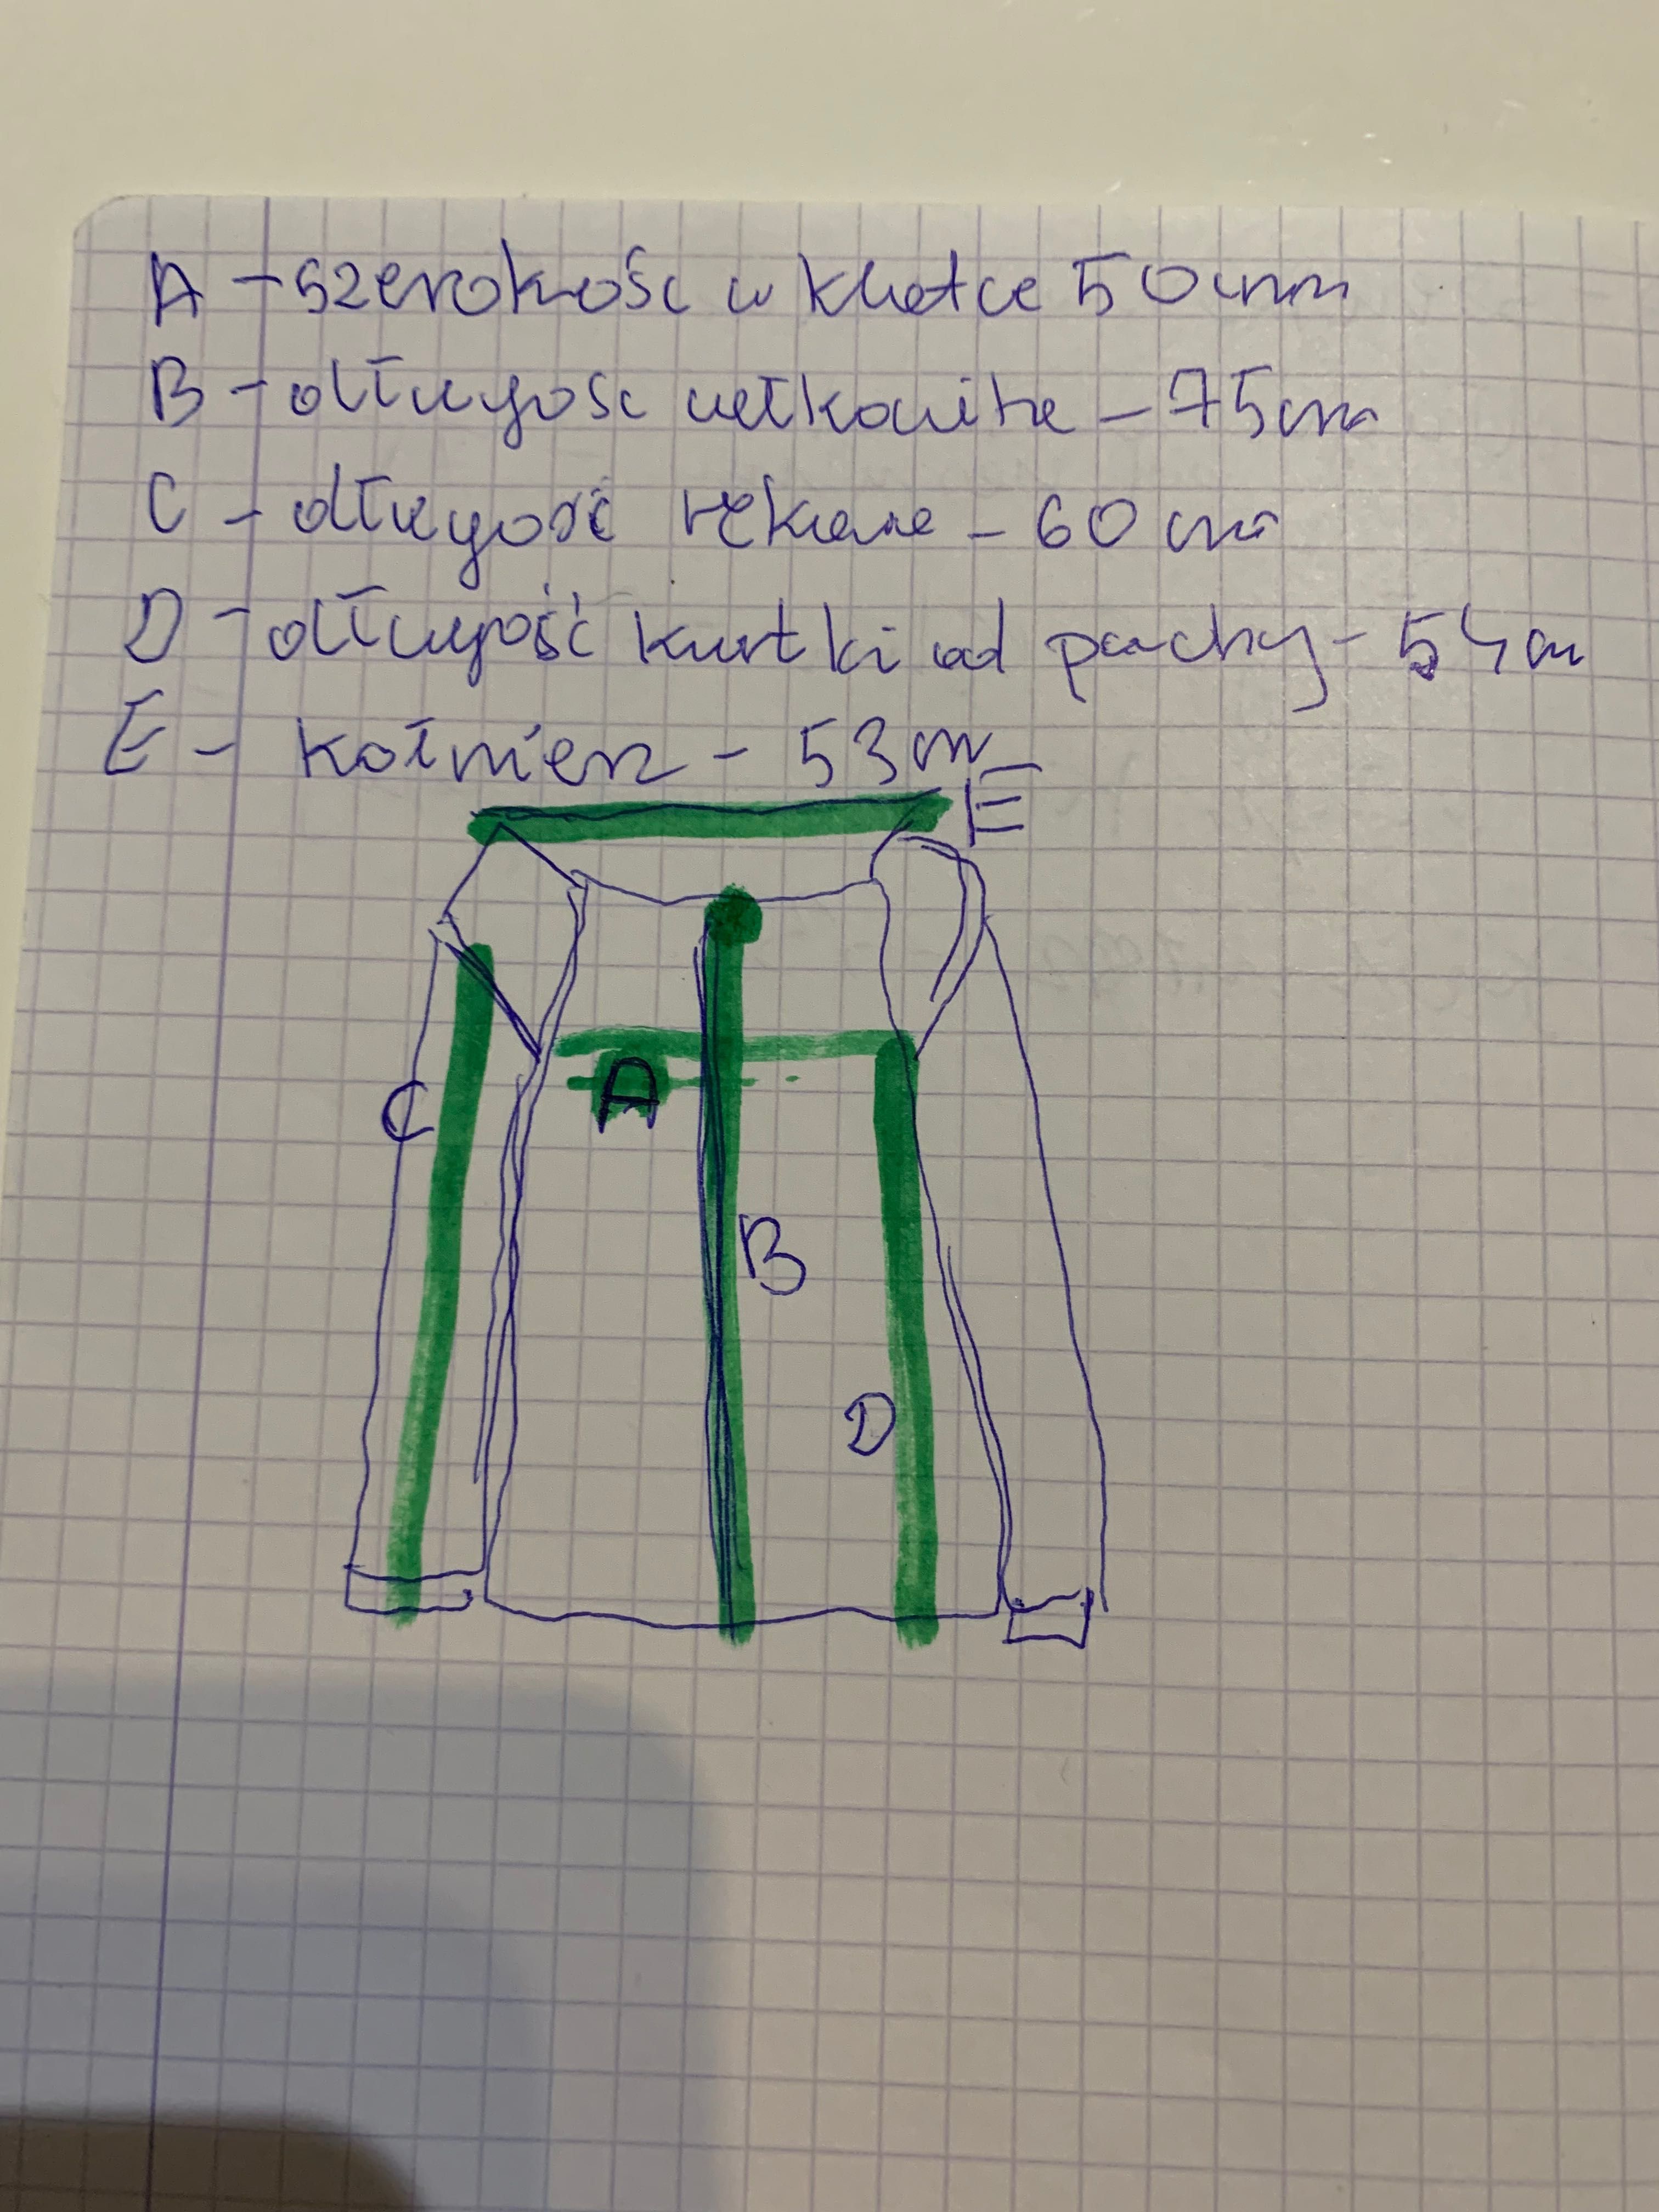 A - szerokość w klatce 50 cm
B - długość całkowita - 75 cm
C - długość rękawa - 60 cm
D - długość kurtki od pachy - 54 cm
E - kołnierz - 53 cm
E
A
C
B
D